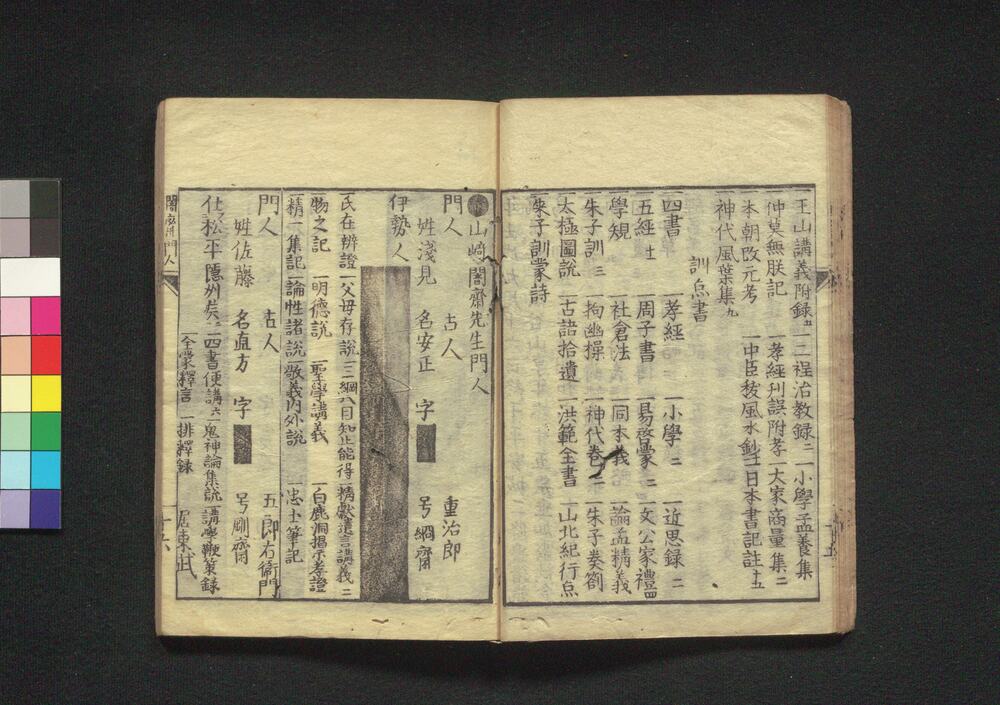 一玉山講義附録 五 一二程治教録 二 一小學孟養集
一仲莫無朕記 一孝經刊誤附孝 一大家商量集 二
一本朝改元考 一中臣祓風水鈔 一日本書記註 十五
一神代風葉集 九
訓点書
一四書 一孝經 一小學 二 一近思録 二
一五經 十一 一周子書 一易啓蒙 二 一文公家禮 四
一學規 一社倉法 一同本義 一論孟精義
一朱子訓 三 一拘幽操 一神代巻 二 一朱子奏劄
一太極圖說 一古語拾遺 一洪範全書 一山北紀行点
一朱子訓蒙詩
山崎闇齋先生門人
門人 古人 重治郎
姓淺見 名安正 字 号絅齋
伊勢人
氏在辨證 一父母存說 一三綱八目知止能得 一靖献遺言講義 二
一物之記 一明德說 一聖學講義 一白鹿洞揭示孝證
一精一集記 一論性諸說 一敬義內外說 一忠士筆記
門人 古人 五郎右衛門
姓佐藤 名直方 字 号剛齋
仕松平隱州矦 一四書便講 六 一鬼神論集說 一講學鞭策録
一全蒙釋言 一排釋録 居東武
闇齋門人
十六